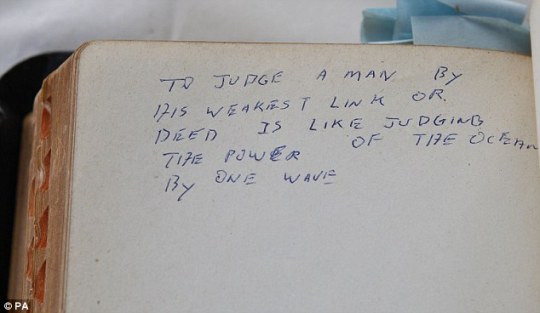 TO JUDGE A MAN BY
HIS WEAKEST LINK OR
DEED IS LIKE JUDGING
THE POWER OF THE OCEAN
BY ONE WAVE
© PA